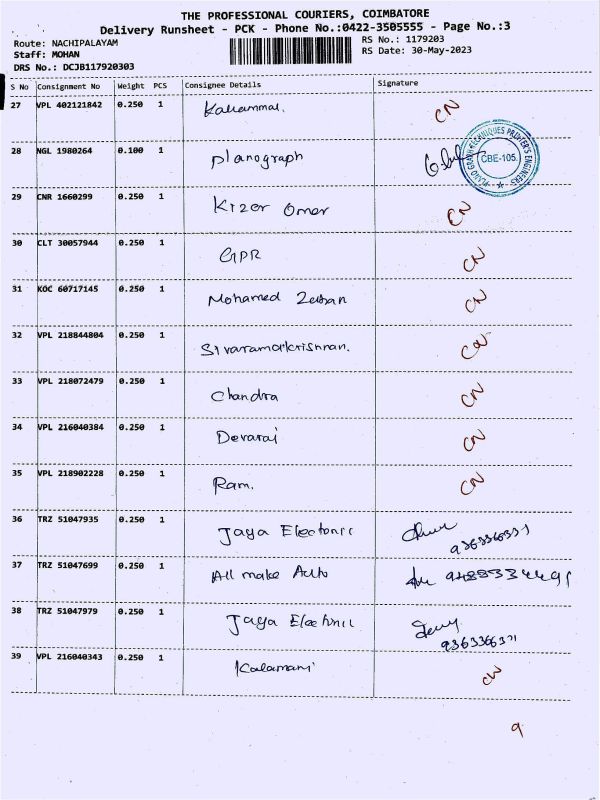 THE PROFESSIONAL COURIERS, COIMBATORE
Delivery Runsheet - PCK - Phone No.:0422-3505555 - Page No.:3
Route: NACHIPALAYAM RS No.: 1179203
Staff: MOHAN RS Date: 30-May-2023
DRS No.: DCJB117920303
S No Consignment No Weight PCS Consignee Details Signature
27 VPL 402121842 0.250 1 Kaliammal. CN
28 NGL 1980264 0.100 1 planograph PLANO GRAPH TECHNIQUES PRINTER'S ENGINEERS CBE-105.
29 CNR 1660299 0.250 1 Kizer Omer CN
30 CLT 30057944 0.250 1 GPR CN
31 KOC 60717145 0.250 1 Mohamed CN
32 VPL 218844804 0.250 1 Sivaramakrishnan. CN
33 VPL 218072479 0.250 1 Chandra CN
34 VPL 216040384 0.250 1 Devaraj CN
35 VPL 218902228 0.250 1 Ram. CN
36 TRZ 51047935 0.250 1 Jaya Electonic
37 TRZ 51047699 0.250 1 All make Auto
38 TRZ 51047979 0.250 1 Jaya Electonic
39 VPL 216040343 0.250 1 Kalamani CN
9